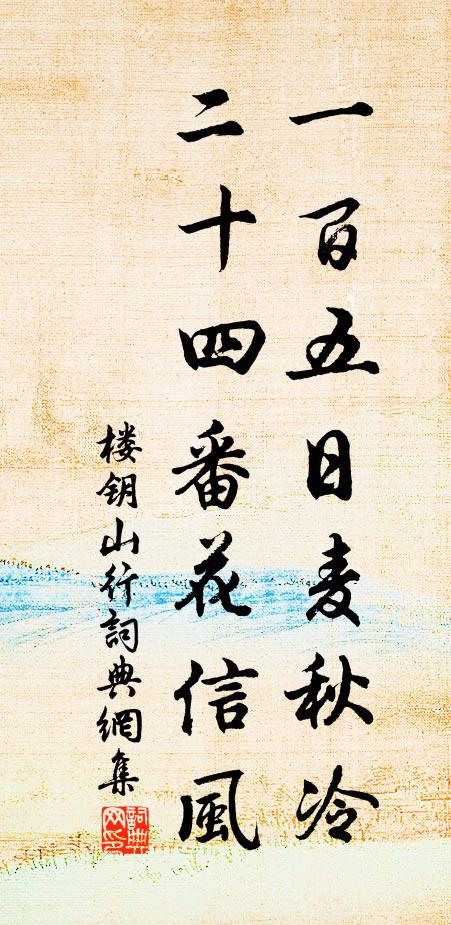 一百五日麦秋冷
二十四番花信風
楼钥山行詞典網集
詞典網印